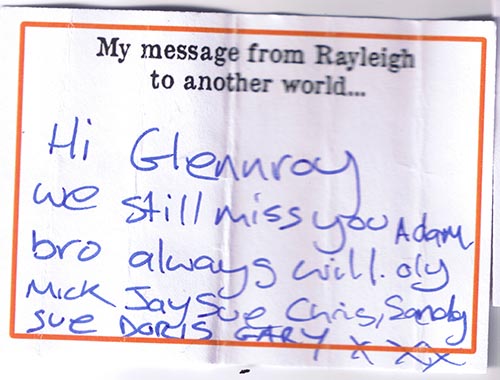 My message from Rayleigh
to another world...
Hi Glennroy
we still miss you Adam
bro always will. oly
Mick Jay Sue Chris, Sandy
Sue DORIS GARY x xx